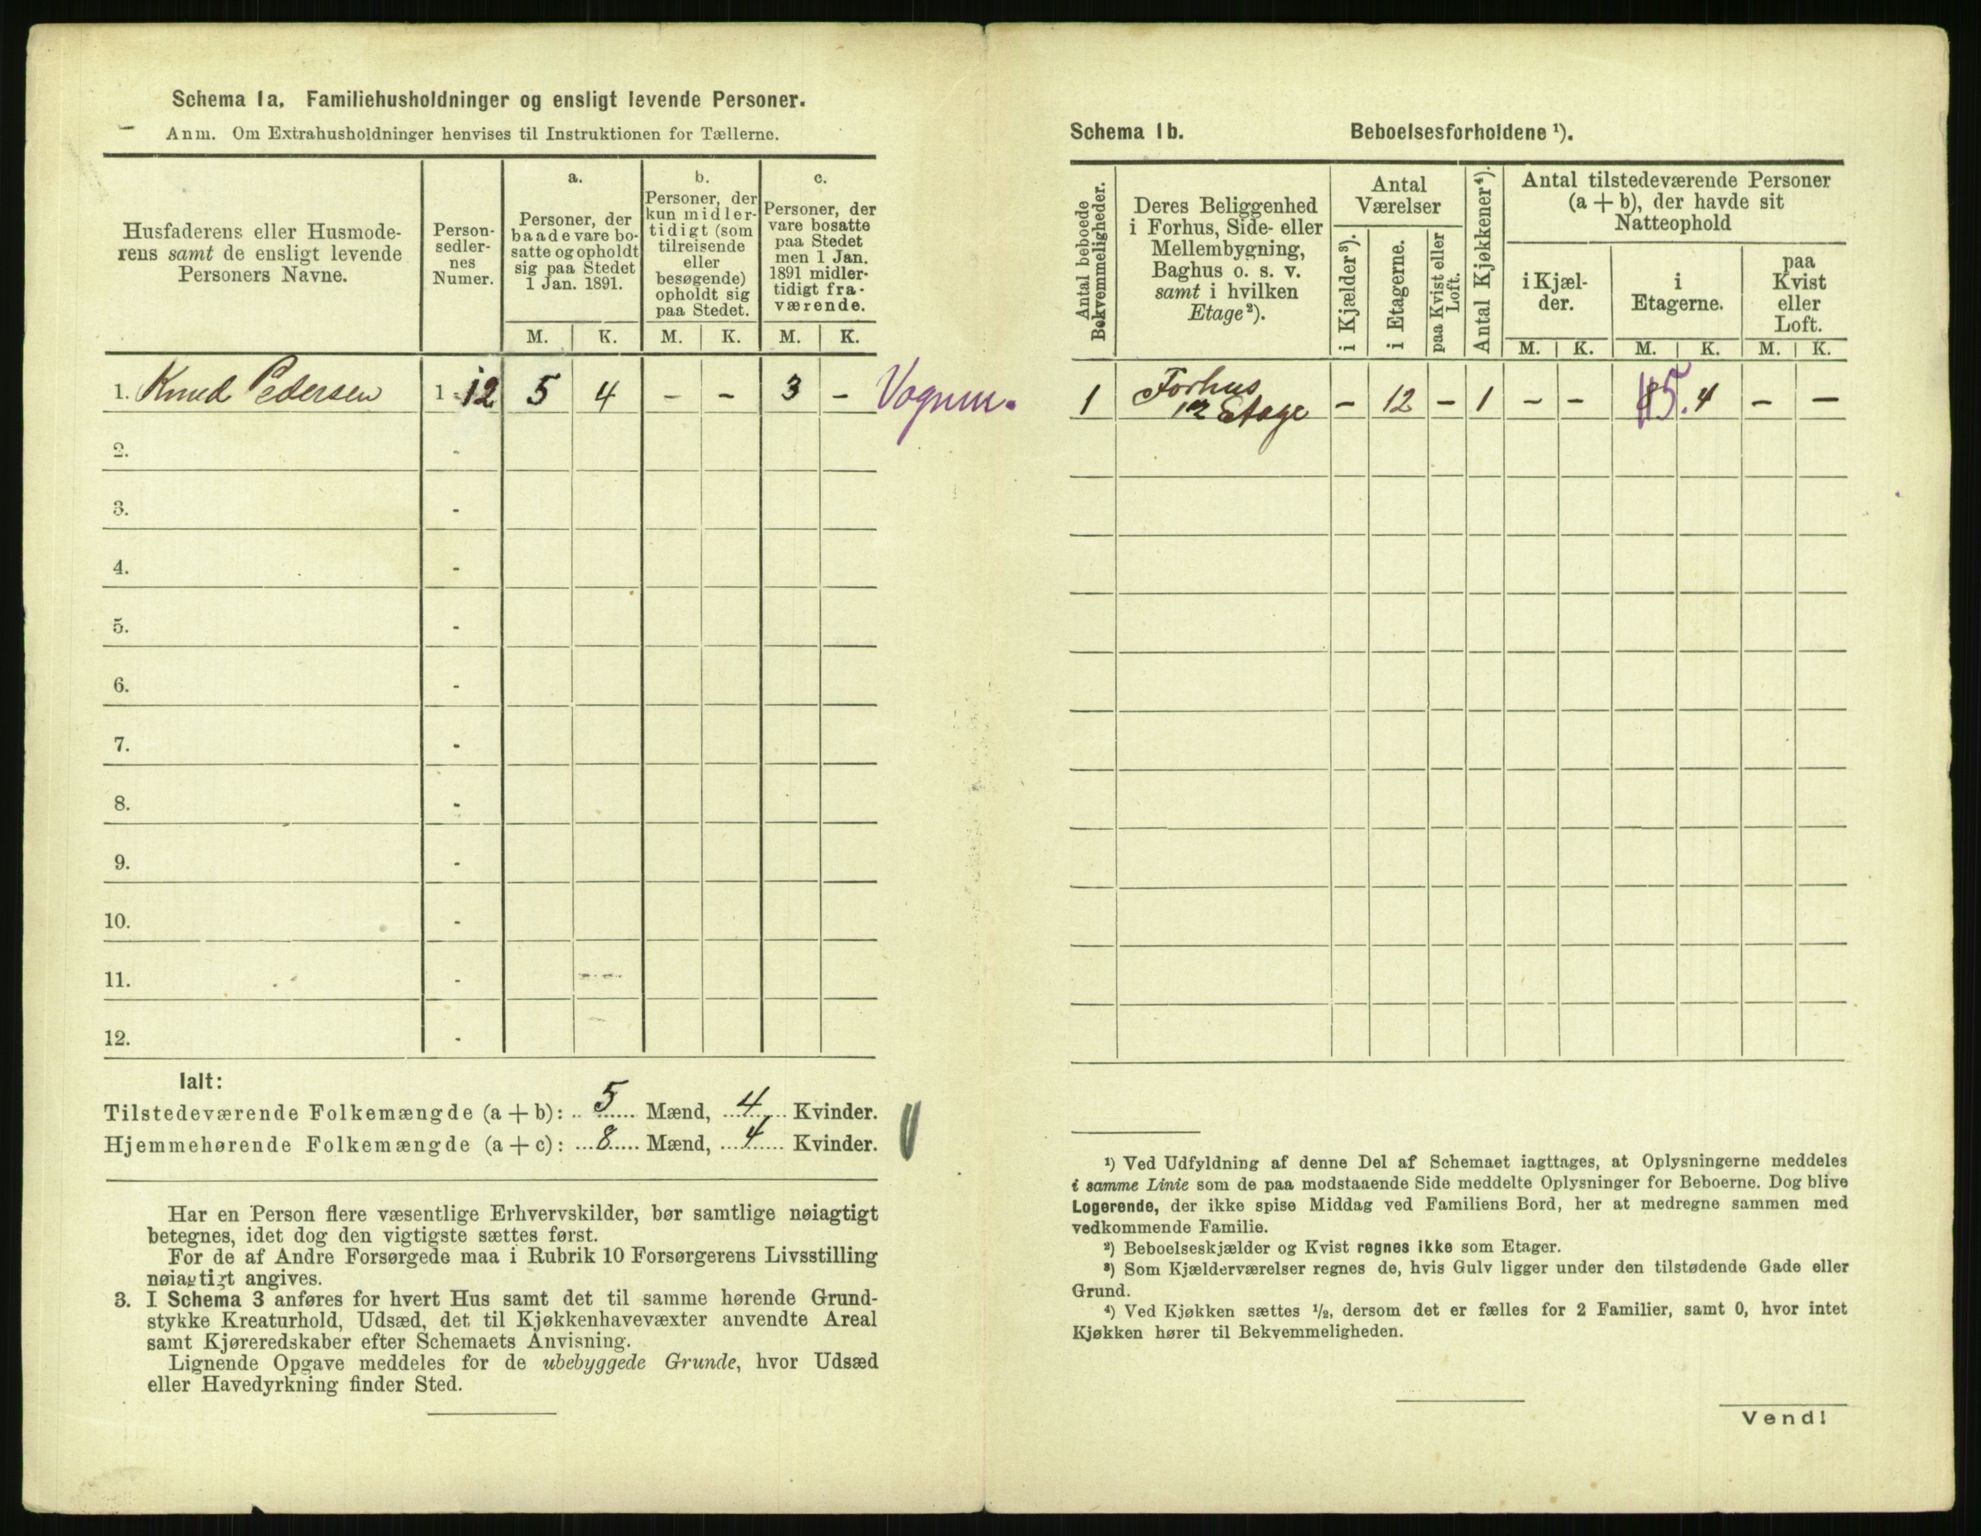 Schema 1a. Familiehusholdninger og ensligt levende Personer.
Anm. Om Extrahusholdninger henvises til Instruktionen for Tællerne.
Husfaderens eller Husmode-
rens samt de ensligt levende
Personers Navne.
Person-
sedler-
nes
Numer.
a.
Personer, der
baade vare bo-
satte og opholdt
sig paa Stedet
1 Jan. 1891.
b.
Personer, der
kun midler-
tidigt (som
tilreisende
eller
besøgende)
opholdt sig
paa Stedet.
c.
Personer, der
vare bosatte
paa Stedet
men 1 Jan.
1891 midler-
tidigt fra-
værende.
M. K. M. K. M. K.
1. Knud Pedersen 1 - 12 5 4 - - 3 - Vognm.
2. -
3. -
4. -
5. -
6. -
7. -
8. -
9. -
10. -
11. -
12. -
Ialt:
Tilstedeværende Folkemængde (a + b): 5 Mænd, 4 Kvinder.
Hjemmehørende Folkemængde (a + c): 8 Mænd, 4 Kvinder.
Har en Person flere væsentlige Erhvervskilder, bør samtlige nøiagtigt
betegnes, idet dog den vigtigste sættes først.
For de af Andre Forsørgede maa i Rubrik 10 Forsørgerens Livsstilling
nøiagtigt angives.
3. I Schema 3 anføres for hvert Hus samt det til samme hørende Grund-
stykke Kreaturhold, Udsæd, det til Kjøkkenhavevæxter anvendte Areal
samt Kjøreredskaber efter Schemaets Anvisning.
Lignende Opgave meddeles for de ubebyggede Grunde, hvor Udsæd
eller Havedyrkning finder Sted.
Schema 1b. Beboelsesforholdene ¹).
Antal beboede
Bekvemmeligheder.
Deres Beliggenhed
i Forhus, Side- eller
Mellembygning,
Baghus o. s. v.
samt i hvilken
Etage²).
Antal
Værelser
i Kjælder³).
i Etagerne.
paa Kvist eller
Loft.
Antal Kjøkkener⁴).
Antal tilstedeværende Personer
(a + b), der havde sit
Natteophold
i Kjæl-
der.
i
Etagerne.
paa
Kvist
eller
Loft.
M. K. M. K. M. K.
1 Forhus
Etage - 12 - 1 - - 5. 4 - -
¹) Ved Udfyldning af denne Del af Schemaet iagttages, at Oplysningerne meddeles
i samme Linie som de paa modstaaende Side meddelte Oplysninger for Beboerne. Dog blive
Logerende, der ikke spise Middag ved Familiens Bord, her at medregne sammen med
vedkommende Familie.
²) Beboelseskjælder og Kvist regnes ikke som Etager.
³) Som Kjælderværelser regnes de, hvis Gulv ligger under den tilstødende Gade eller
Grund.
⁴) Ved Kjøkken sættes ½, dersom det er fælles for 2 Familier, samt 0, hvor intet
Kjøkken hører til Bekvemmeligheden.
Vend!